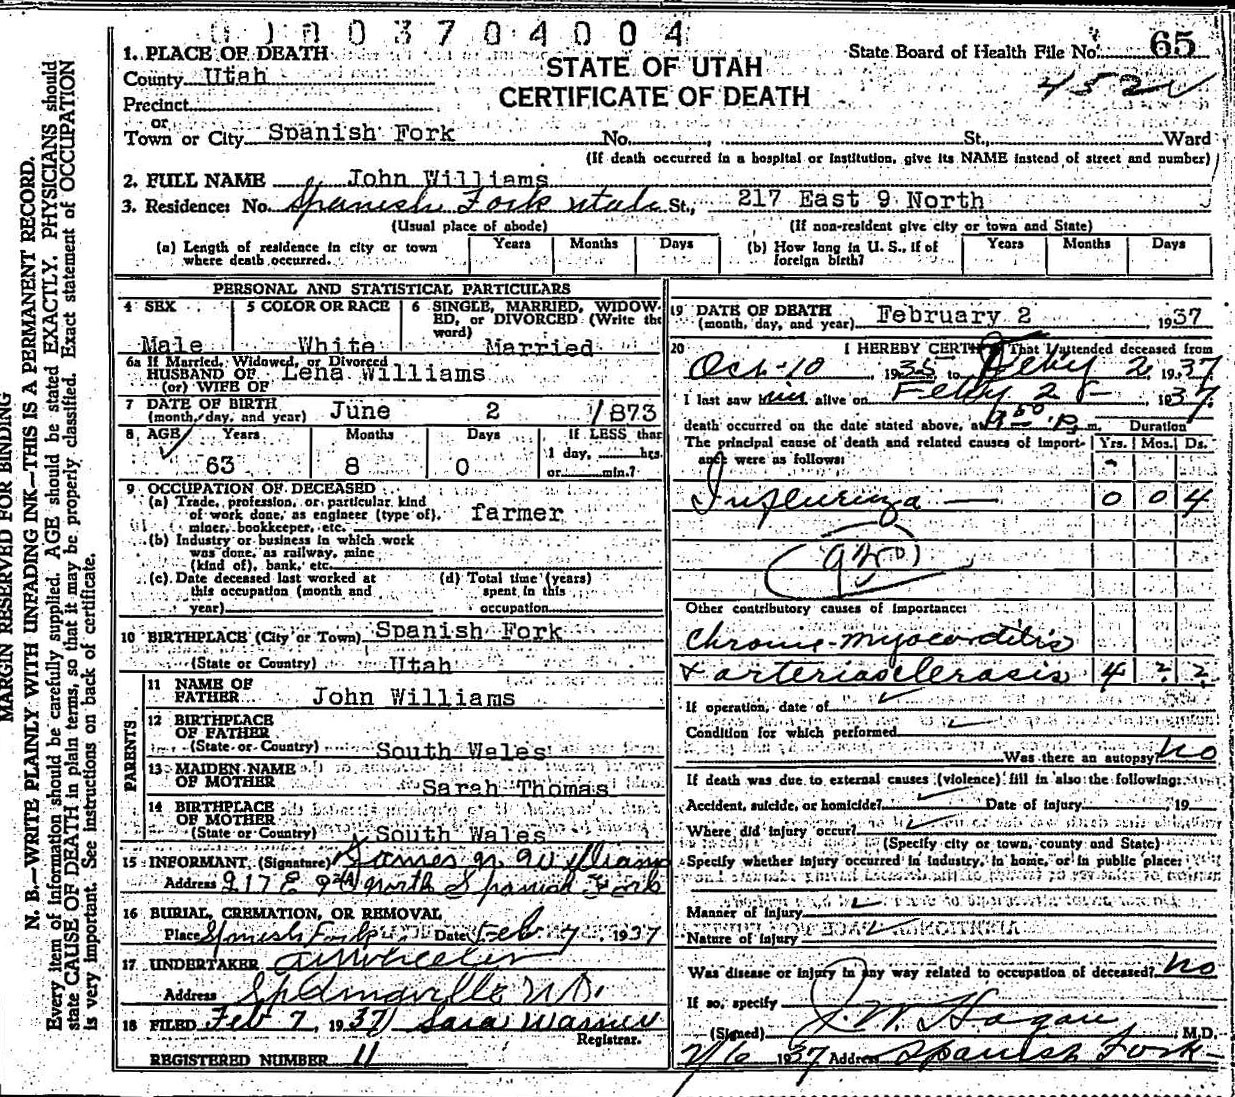 0100370400 4
1. PLACE OF DEATH
County Utah
Precinct
or
Town or City Spanish Fork No. , St., Ward
STATE OF UTAH
CERTIFICATE OF DEATH
State Board of Health File No. 65
452
(If death occurred in a hospital or institution, give its NAME instead of street and number)
2. FULL NAME John Williams
3. Residence: No. Spanish Fork Utah St., 217 East 9 North
(Usual place of abode) (If non-resident give city or town and State)
(a) Length of residence in city or town where death occurred. Years Months Days
(b) How long in U. S., if of foreign birth? Years Months Days
PERSONAL AND STATISTICAL PARTICULARS
4 SEX Male
5 COLOR OR RACE White
6 SINGLE, MARRIED, WIDOWED, or DIVORCED (Write the word) Married
6a If Married, Widowed, or Divorced
HUSBAND OF Lena Williams
(or) WIFE OF
7 DATE OF BIRTH (month, day, and year) June 2 1873
8. AGE Years 63 Months 8 Days 0
If LESS than 1 day, hrs. or min.?
9 OCCUPATION OF DECEASED
(a) Trade, profession, or particular kind of work done, as engineer (type of), miner, bookkeeper, etc. farmer
(b) Industry or business in which work was done, as railway, mine (kind of), bank, etc.
(c) Date deceased last worked at this occupation (month and year)
(d) Total time (years) spent in this occupation
10 BIRTHPLACE (City or Town) Spanish Fork
(State or Country) Utah
PARENTS
11 NAME OF FATHER John Williams
12 BIRTHPLACE OF FATHER (State or Country) South Wales
13 MAIDEN NAME OF MOTHER Sarah Thomas
14 BIRTHPLACE OF MOTHER (State or Country) South Wales
15 INFORMANT (Signature) James Williams
Address 217 E 9th North Spanish Fork
16 BURIAL, CREMATION, OR REMOVAL
Place Spanish Fork Date Feb 7, 1937
17 UNDERTAKER
Address Springville
18 FILED Feb 7, 1937 Sara Warner
Registrar.
REGISTERED NUMBER 11
19 DATE OF DEATH (month, day, and year) February 2 1937
20 I HEREBY CERTIFY That I attended deceased from
Oct-10, 1935 to Feby 2, 1937
I last saw him alive on Feby 2, 1937
death occurred on the date stated above, at 9 50 P. m.
Duration
The principal cause of death and related causes of importance were as follows: Yrs. Mos. Ds.
Influenza 0 0 4
Other contributory causes of importance:
Chronic-myocarditis
& arteriosclerosis 4 ? ?
If operation, date of
Condition for which performed
Was there an autopsy? No
If death was due to external causes (violence) fill in also the following:
Accident, suicide, or homicide? Date of injury , 19
Where did injury occur?
(Specify city or town, county and State)
Specify whether injury occurred in industry, in home, or in public place:
Manner of injury
Nature of injury
Was disease or injury in any way related to occupation of deceased? No
If so, specify
(Signed) J. W. Hagan M.D.
2/6 1937 Address Spanish Fork
MARGIN RESERVED FOR BINDING
N. B.—WRITE PLAINLY WITH UNFADING INK—THIS IS A PERMANENT RECORD.
Every item of information should be carefully supplied. AGE should be stated EXACTLY. PHYSICIANS should
state CAUSE OF DEATH in plain terms, so that it may be properly classified. Exact statement of OCCUPATION
is very important. See instructions on back of certificate.